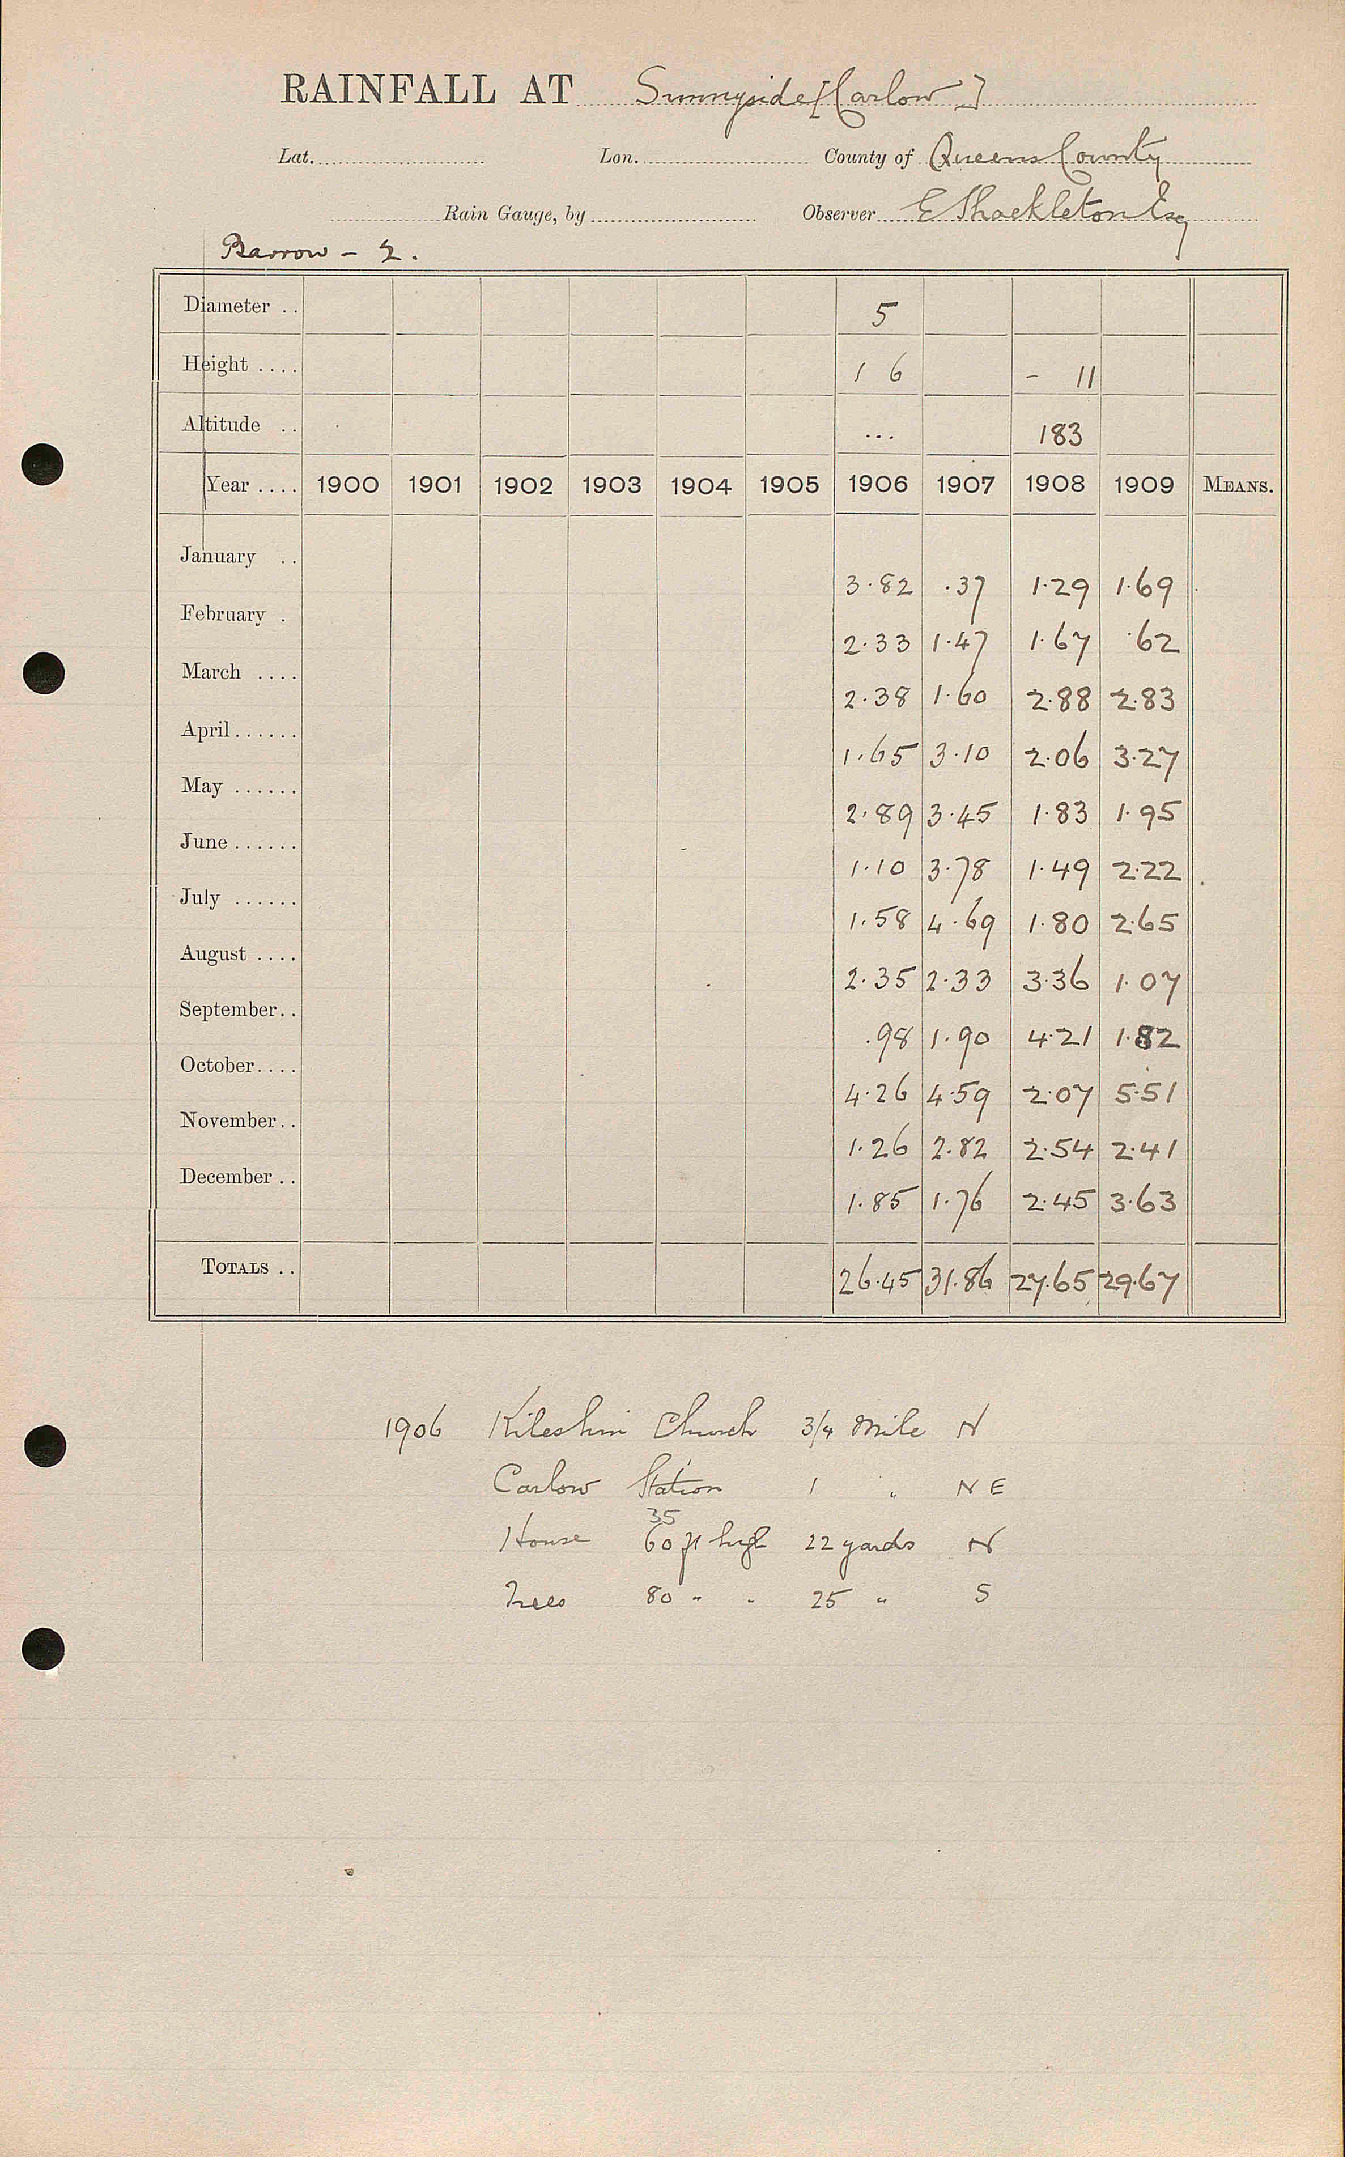 RAINFALL AT Sunnyside [Carlow]
Lat. Lon. County of Queens County
Rain Gauge, by Observer E Shackleton Esq
Barrow - 2.
Diameter .. 5
Height .... 1 6 - 11
Altitude .. ... 183
Year .... 1900 1901 1902 1903 1904 1905 1906 1907 1908 1909 MEANS.
January .. 3.82 .37 1.29 1.69
February . 2.33 1.47 1.67 .62
March .... 2.38 1.60 2.88 2.83
April ...... 1.65 3.10 2.06 3.27
May ...... 2.89 3.45 1.83 1.95
June ...... 1.10 3.78 1.49 2.22
July ...... 1.58 4.69 1.80 2.65
August .... 2.35 2.33 3.36 1.07
September.. .98 1.90 4.21 1.82
October.... 4.26 4.59 2.07 5.51
November.. 1.26 2.82 2.54 2.41
December .. 1.85 1.76 2.45 3.63
TOTALS .. 26.45 31.86 27.65 29.67
1906 Kileshin Church 3/4 mile N
Carlow Station 1 " N E
35
House 60 ft high 22 yards N
Trees 80 " " 25 " S